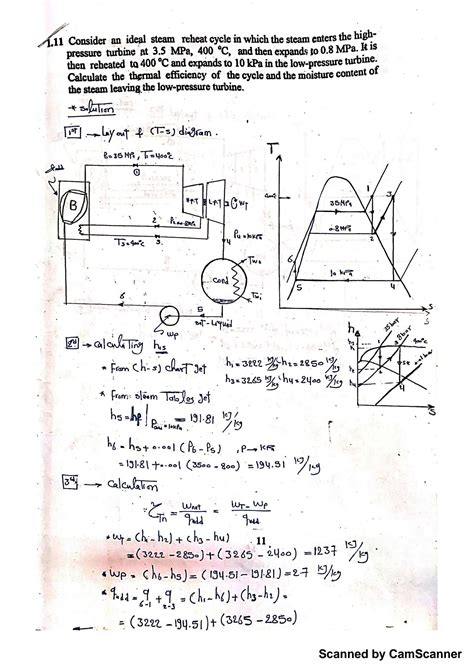 1.11 Consider an ideal steam reheat cycle in which the steam enters the high-
pressure turbine at 3.5 MPa, 400 °C, and then expands to 0.8 MPa. It is
then reheated to 400 °C and expands to 10 kPa in the low-pressure turbine.
Calculate the thermal efficiency of the cycle and the moisture content of
the steam leaving the low-pressure turbine.
* solution
1st → layout & (T-s) diagram.
P1=35 MPa, T1=400°C
B
H.P.T
L.P.T
WT
T3=400°C
P4=10kPa
Cond
sat-liquid
WP
T
35MPa
.8MPa
10 kPa
S
2nd → calculating hs
* From (h-s) chart get h1=3222 kJ/kg h2=2850 kJ/kg
h3=3265 kJ/kg h4=2400 kJ/kg
* From steam Tables get
h5=hf|P=10kPa = 191.81 kJ/kg
h6=h5+0.001 (P6-P5), P→kPa
=191.81+0.001(3500-800)=194.51 kJ/kg
h
S
3rd → calculation
ηTh = Wnet/qadd = WT-WP/qadd
* WT=(h1-h2)+(h3-h4) 11
=(3222-2850)+(3265-2400)=1237 kJ/kg
* WP=(h6-h5)=(194.51-191.81)=2.7 kJ/kg
* qadd=q6-1+q2-3=(h1-h6)+(h3-h2)=
=(3222-194.51)+(3265-2850)
Scanned by CamScanner